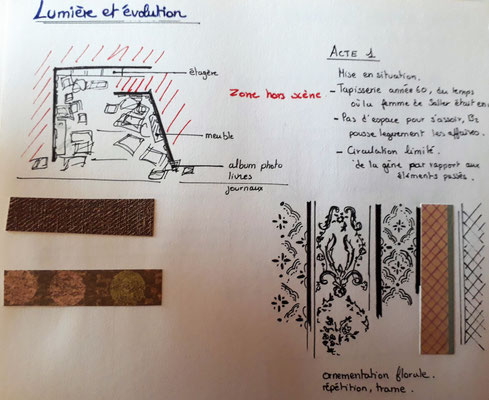 Lumière et évolution
étagère
Zone hors scène
meuble
album photo
livres
journaux
ACTE 1
Mise en situation.
- Tapisserie année 60, du temps
où la femme de Salter était en
- Pas d'espace pour s'assoir,
pousse légèrement les affaires.
- Circulation limité.
de la gêne par rapport aux
éléments passés.
ornementation florale.
répétition, trame.